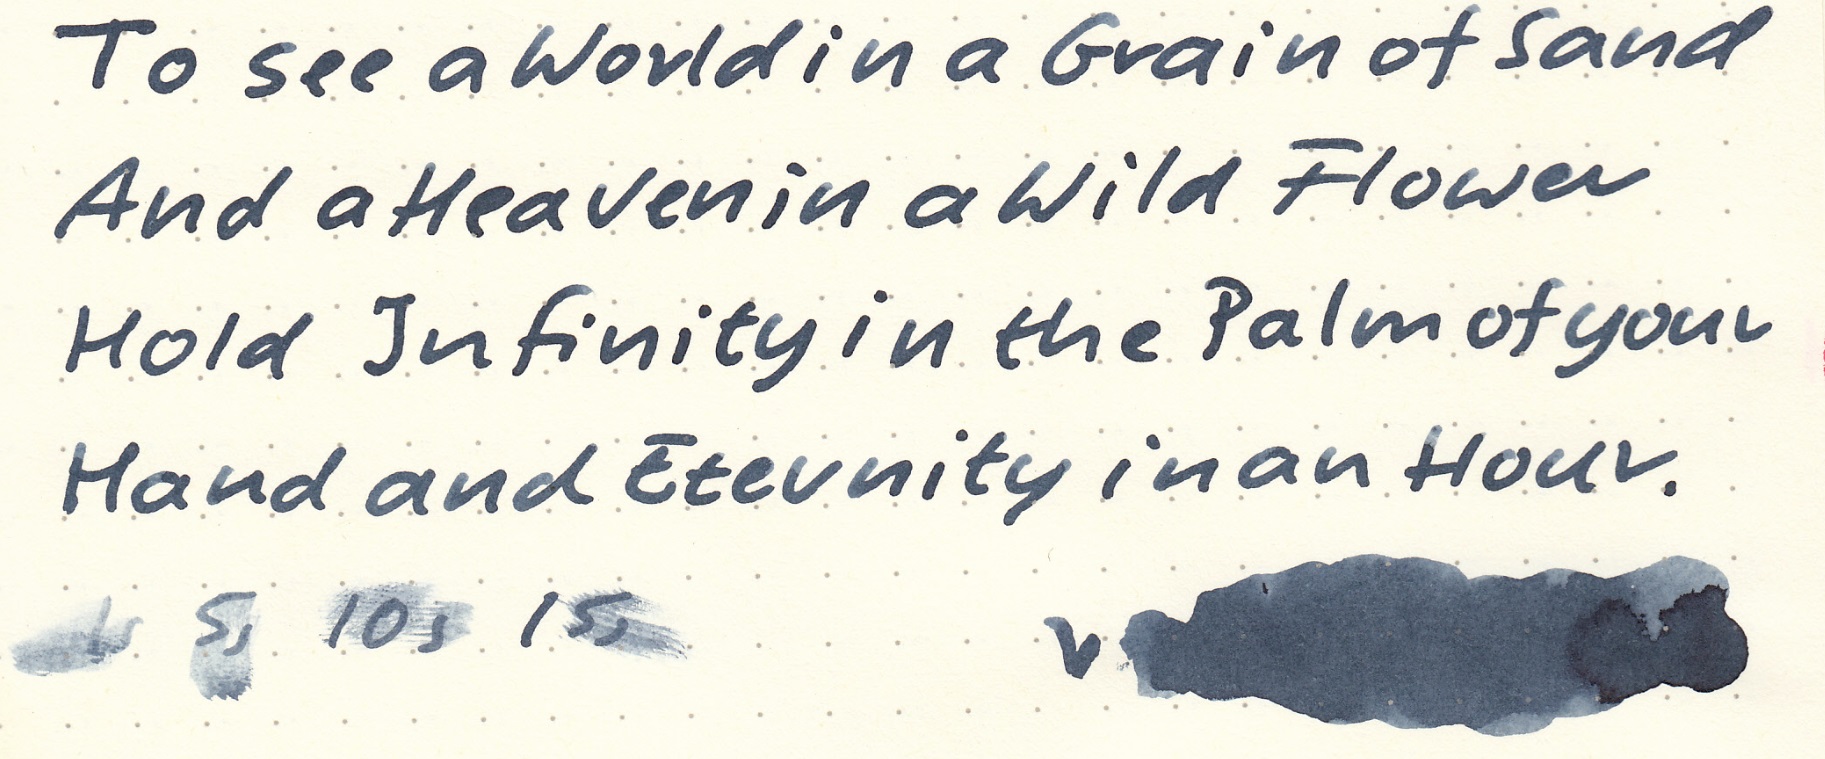 To see a World in a Grain of Sand
And a Heaven in a Wild Flower
Hold Infinity in the Palm of your
Hand and Eternity in an Hour.
1s 5s 10s 15s